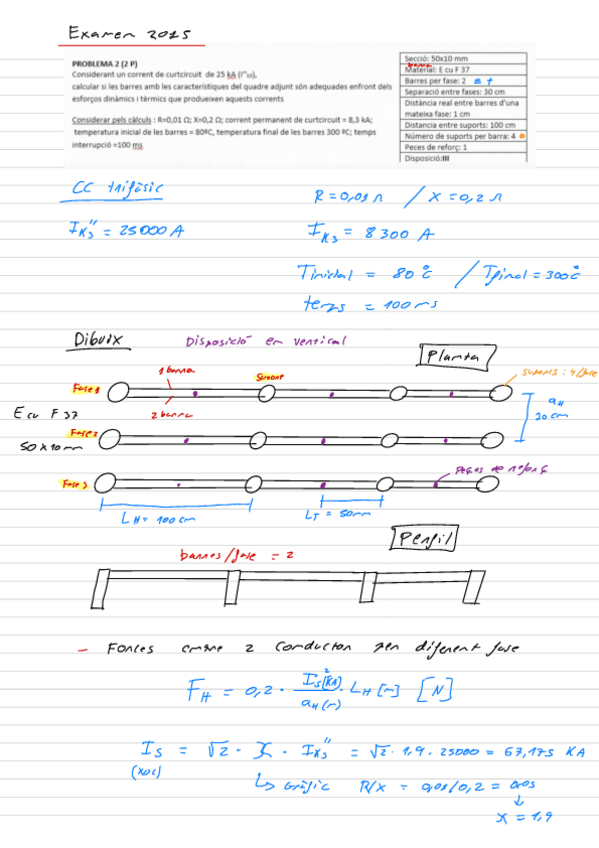 Examen 2025
PROBLEMA 2 (2 P)
Considerant un corrent de curtcircuit de 25 kA (I''k3),
calcular si les barres amb les característiques del quadre adjunt són adequades enfront dels
esforços dinàmics i tèrmics que produeixen aquests corrents
Considerar pels càlculs : R=0,01 Ω; X=0,2 Ω; corrent permanent de curtcircuit = 8,3 kA;
temperatura inicial de les barres = 80ºC, temperatura final de les barres 300 ºC; temps
interrupció =100 ms
Secció: 50x10 mm
Material: E cu F 37
Barres per fase: 2
Separació entre fases: 30 cm
Distància real entre barres d'una
mateixa fase: 1 cm
Distancia entre suports: 100 cm
Número de suports per barra: 4
Peces de reforç: 1
Disposició:III
CC trifàsic
R = 0,01 Ω / X = 0,2 Ω
IK3'' = 25000 A
IK3 = 8300 A
Tinicial = 80°C / Tfinal = 300°C
temps = 100 ms
Dibuix
Disposició en vertical
Planta
1 barra
Suport
suports: 4/fase
Fase 1
2 barra
aH
30 cm
E cu F 37
Fase 2
50 x 10 mm
Fase 3
peças de reforç
LH = 100 cm
LT = 50 mm
Perfil
barres/fase = 2
- Forces entre 2 conductors per diferent fase
FH = 0,2 · IS²(KA) / aH (m) · LH [m] [N]
IS = √2 · χ · IK3'' = √2 · 1,9 · 25000 = 67,175 KA
(xoc)
↳ Gràfic R/X = 0,01/0,2 = 0,05
↓
χ = 1,9